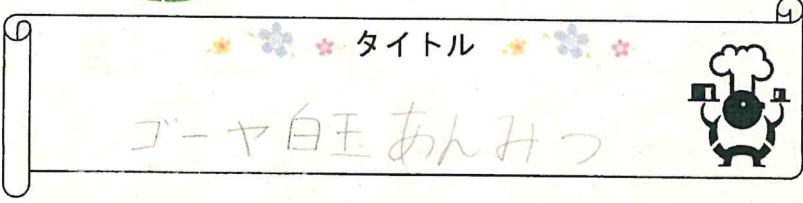 タイトル
ゴーヤ白玉あんみつ